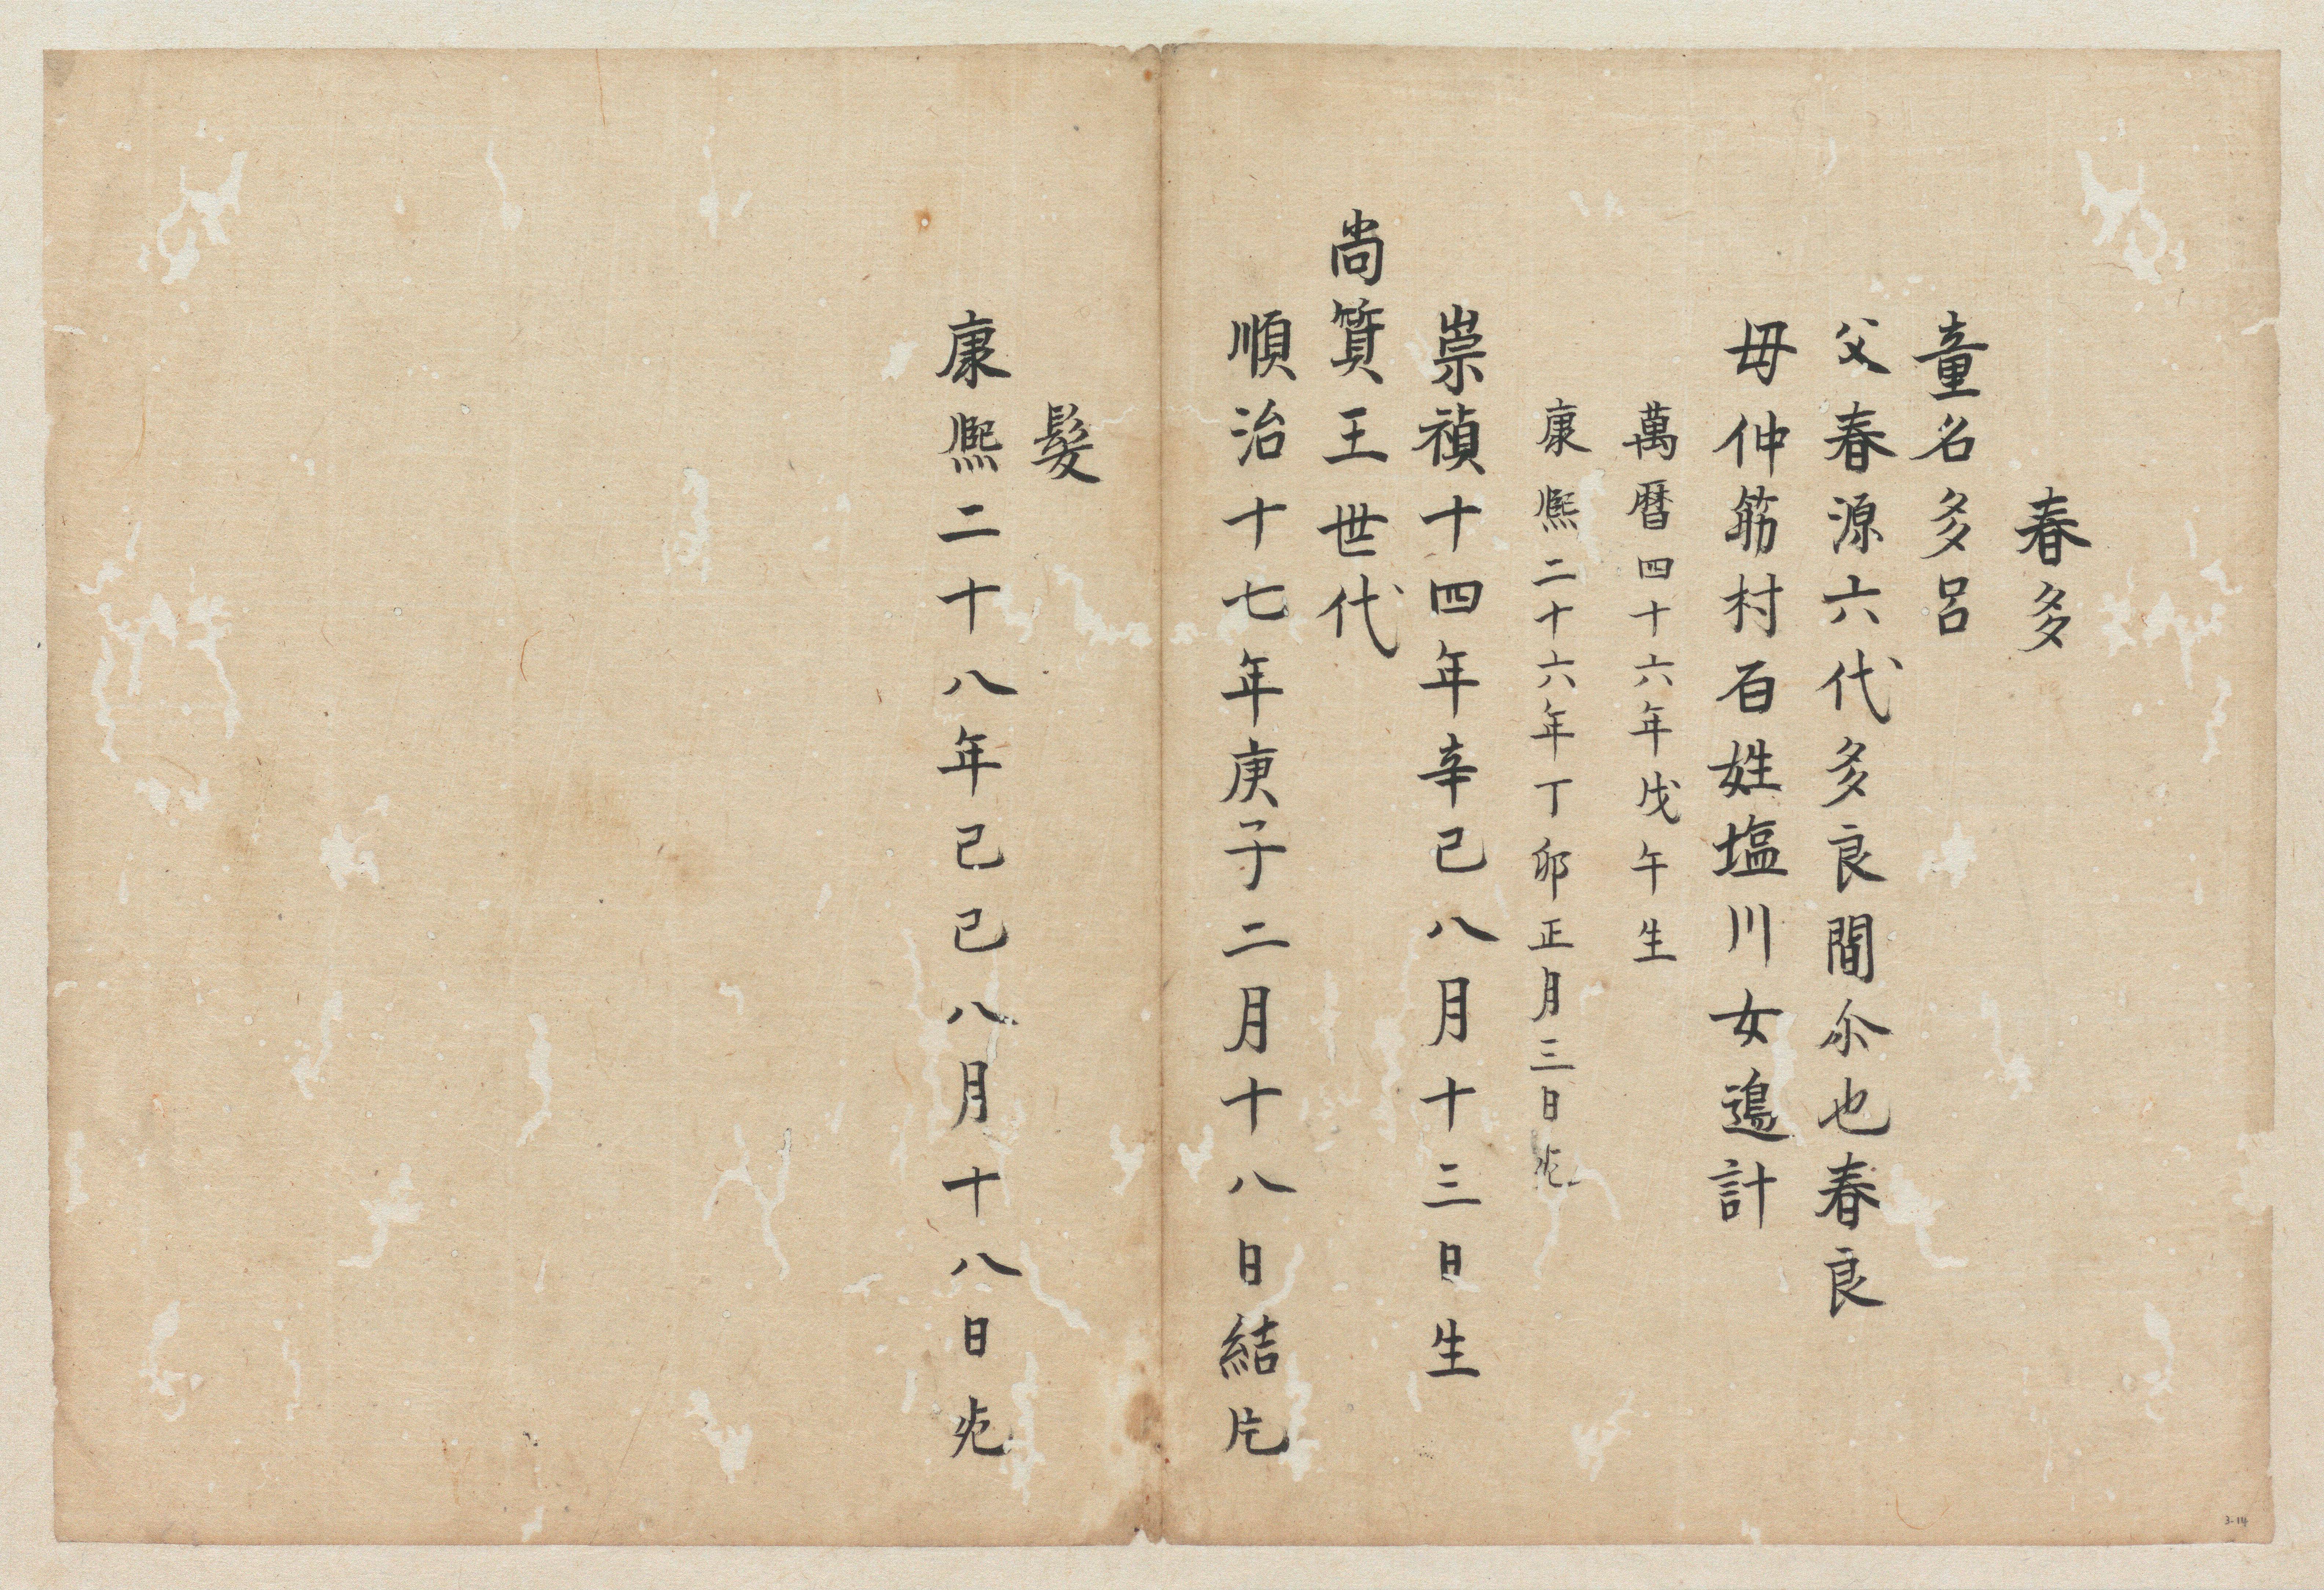 春多
童名多呂
父春源六代多良間尒也春良
母仲筋村百姓塩川女邉計
萬暦四十六年戊午生
康熈二十六年丁卯正月三日死
崇禎十四年辛巳八月十三日生
尚質王世代
順治十七年庚子二月十八日結片
髮
康熈二十八年己巳八月十八日死
3-14